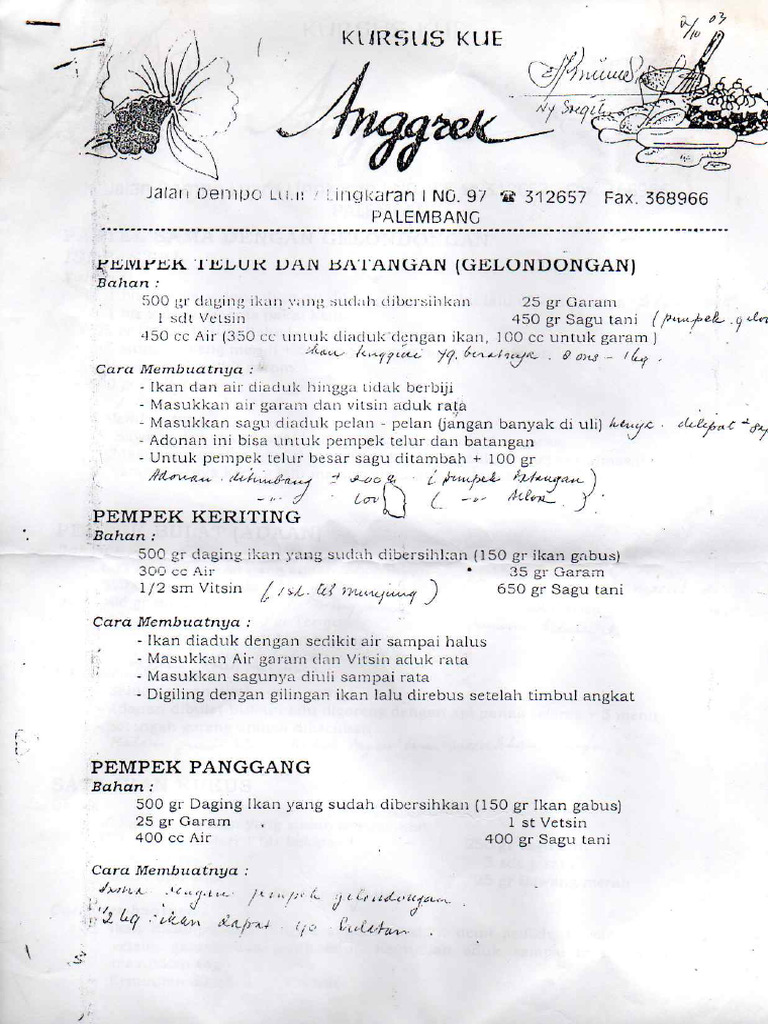 2/10 03
KURSUS KUE
Anggrek
Jalan Dempo Lingkaran I NO. 97 ☎ 312657 Fax. 368966
PALEMBANG
PEMPEK TELUR DAN BATANGAN (GELONDONGAN)
Bahan :
500 gr daging ikan yang sudah dibersihkan 25 gr Garam
1 sdt Vetsin 450 gr Sagu tani (pempek gelon
450 cc Air (350 cc untuk diaduk dengan ikan, 100 cc untuk garam )
ikan tenggiri yg. beratnya 8 ons - 1 kg.
Cara Membuatnya :
- Ikan dan air diaduk hingga tidak berbiji
- Masukkan air garam dan vitsin aduk rata
- Masukkan sagu diaduk pelan - pelan (jangan banyak di uli) hanya dilipat ±
- Adonan ini bisa untuk pempek telur dan batangan
- Untuk pempek telur besar sagu ditambah + 100 gr
Adonan ditimbang ± 200 g (pempek batangan)
-"- 100 ( -"- telor )
PEMPEK KERITING
Bahan :
500 gr daging ikan yang sudah dibersihkan (150 gr ikan gabus)
300 cc Air 35 gr Garam
1/2 sm Vitsin (1 sd. teh munjung) 650 gr Sagu tani
Cara Membuatnya :
- Ikan diaduk dengan sedikit air sampai halus
- Masukkan Air garam dan Vitsin aduk rata
- Masukkan sagunya diuli sampai rata
- Digiling dengan gilingan ikan lalu direbus setelah timbul angkat
PEMPEK PANGGANG
Bahan :
500 gr Daging Ikan yang sudah dibersihkan (150 gr Ikan gabus)
25 gr Garam 1 st Vetsin
400 cc Air 400 gr Sagu tani
Cara Membuatnya :
sama dengan pempek gelondongan.
1/2 kg ikan dapat 40 bulatan.